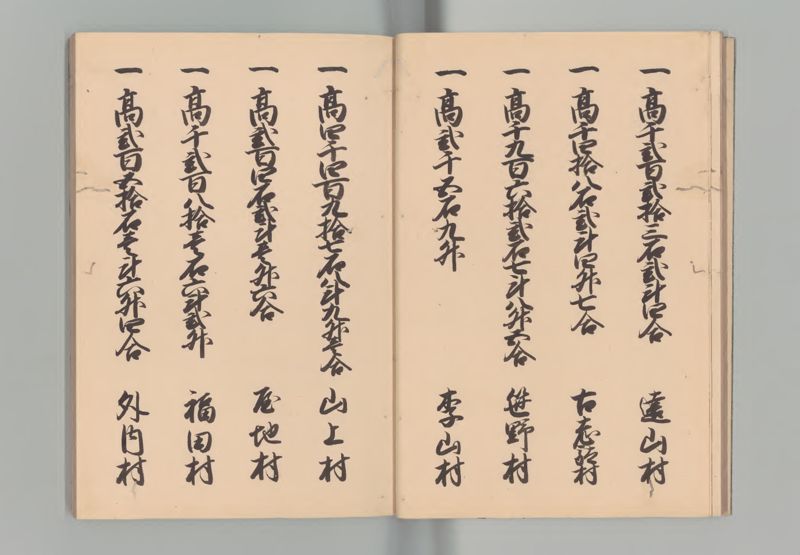 一 高千弐百弐拾三石弐斗四合 遠山村
一 高千四拾八石弐斗四升七合 古志田村
一 高千九百六拾弐石七斗八升五合 笹野村
一 高弐千五石九升 李山村
一 高四千四百九拾七石八斗九升壱合 山上村
一 高弐百四石弐斗壱升六合 屋地村
一 高千弐百八拾壱石六斗弐升 福田村
一 高弐百五拾石壱斗六升四合 外内村